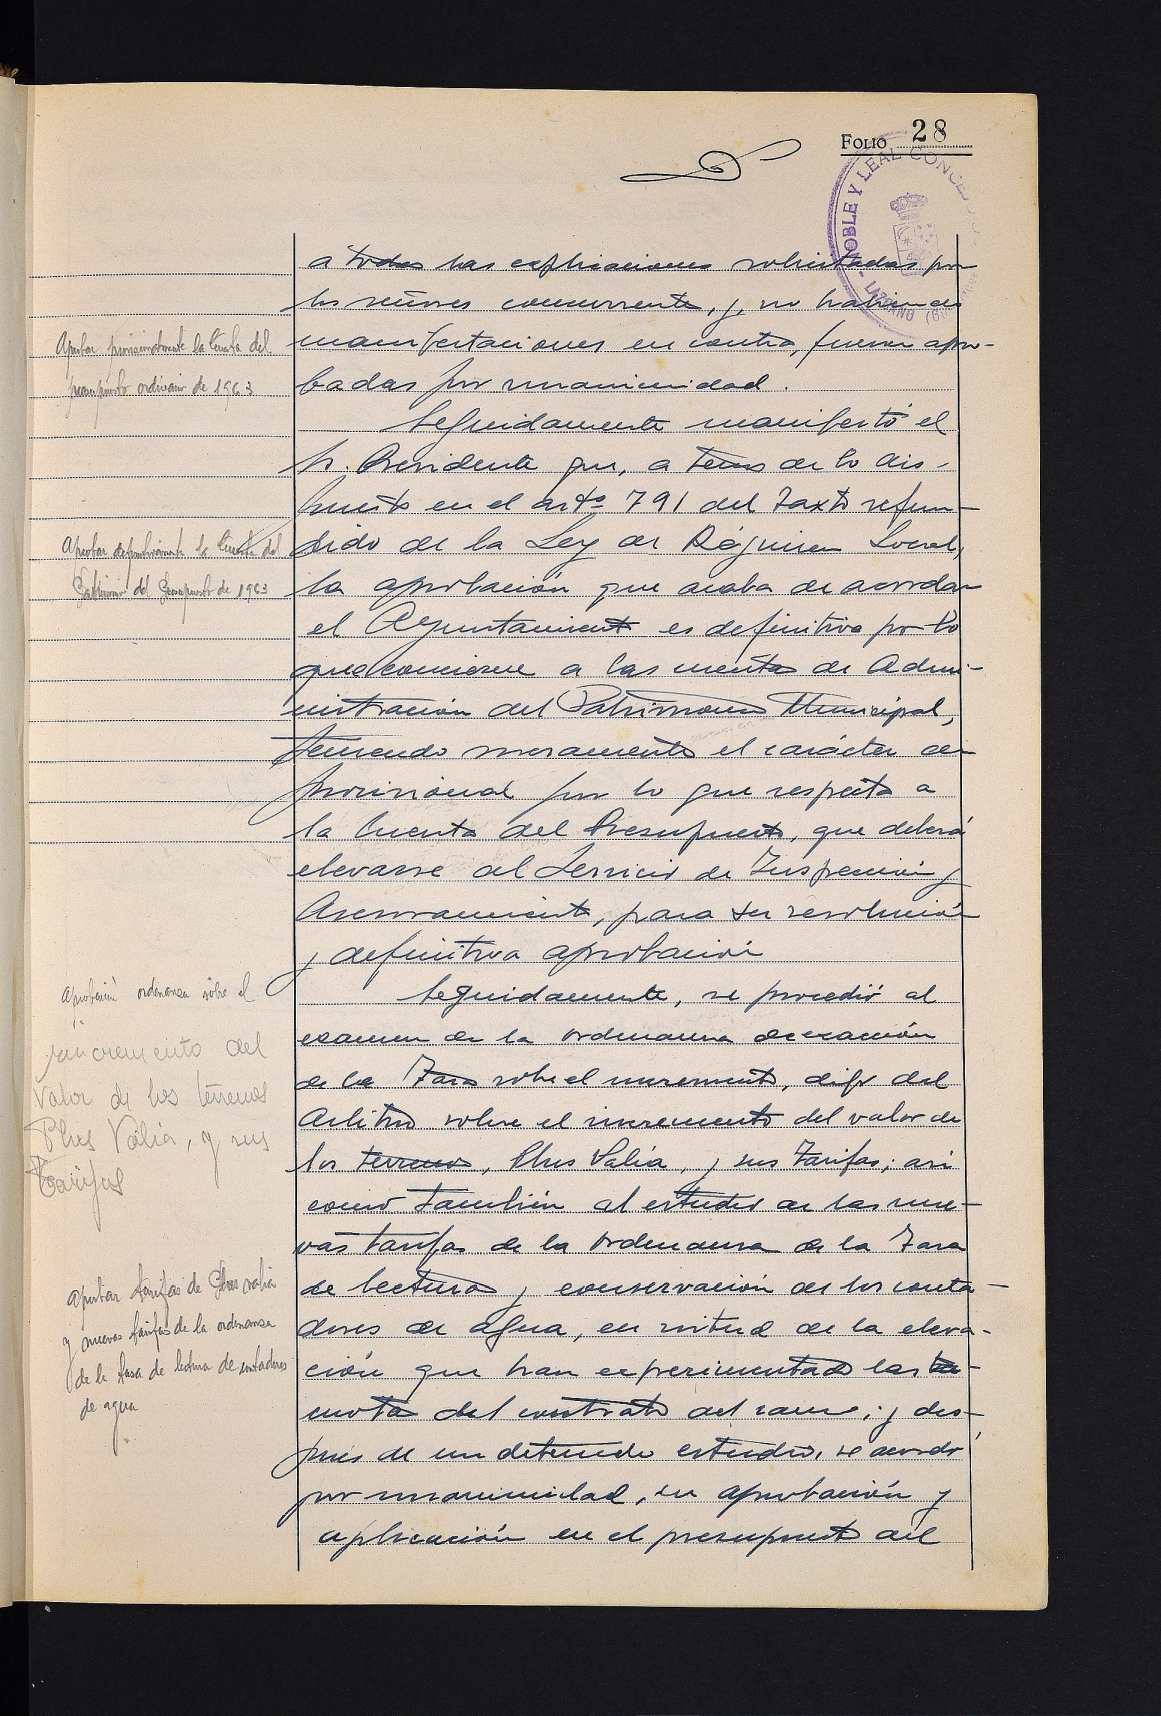 FOLIO 28
NOBLE Y LEAL CONCEJO
LAZCANO
a todas las explicaciones solicitadas por
los señores concurrente, y, no habiendo
manifestaciones en contra, fueron apro-
badas por unanimidad.
Seguidamente manifestó el
Sr. Presidente que, a tenor de lo dis-
puesto en el artº 791 del Texto refun-
dido de la Ley de Régimen Local,
la aprobación que acaba de acordar
el Ayuntamiento es definitiva por lo
que concierne a las cuentas de Admi-
nistración del Patrimonio Municipal,
teniendo meramente el carácter de
provisional por lo que respecta a
la Cuenta del Presupuesto, que deberá
elevarse al Servicio de Inspección y
Asesoramiento, para su resolución
y definitiva aprobación
Seguidamente, se procedió al
examen de la ordenanza de exacción
de la Tasa sobre el incremento, digo del
Arbitrio sobre el incremento del valor de
los terrenos, Plus Valia, y sus Tarifas; asi
como también al estudio de las nue-
vas tarifas de la Ordenanza de la Tasa
de lectura y conservación de los conta-
dores de agua, en virtud de la eleva-
ción que han experimentado las
cuotas del contrato del ramo; y des-
pués de un detenido estudio, se acordó
por unanimidad, su aprobación y
aplicación en el presupuesto del
Aprobar provisionalmente la Cuenta del
presupuesto ordinario de 1963
Aprobar definitivamente la Cuenta del
Patrimonio del Presupuesto de 1963
Aprobación ordenanza sobre el
incremento del
valor de los terrenos
Plus Válía, y sus
tarifas
Aprobar tarifas de Plus valia
y nuevas tarifas de la ordenanza
de la tasa de lectura de contadores
de agua